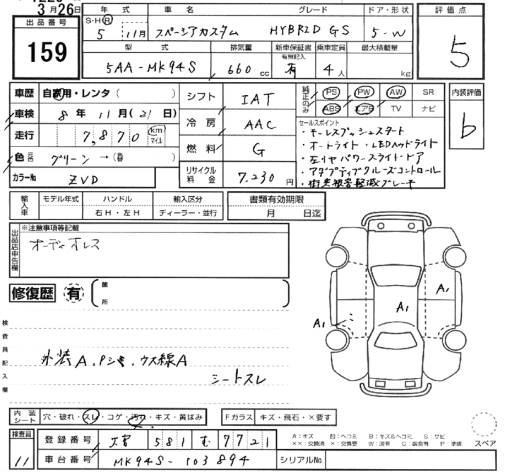 3月26日
出品番号
159
年式 車名 グレード ドア・形状
S・H・R 5 11月 スペーシアカスタム HYBRID GS 5-W
型式 排気量 新車保証書 乗車定員 最大積載量
有無記入
5AA-MK94S 660 cc 有 4人 kg
評価点
5
内装評価
b
車歴 自家用・レンタ( )
車検 8年 11月(21日)
走行 7,870 km マイル
色 グリーン →(替)
カラーNo ZVD
シフト IAT
冷房 AAC
燃料 G
リサイクル料金 7.230円
純正のみ
PS PW AW SR
ABS エアB TV ナビ
セールスポイント
・キーレスプッシュスタート
・オートライト・LEDヘッドライト
・左リヤパワースライドドア
・アダプティブクルーズコントロール
・衝突被害軽減ブレーキ
輸入車
モデル年式 ハンドル 輸入区分
右H・左H ディーラー・並行
書類有効期限
月 日迄
出品店申告欄
※注意事項等記載
オーディオレス
修復歴 有
箇所
検査員記入欄
外装A.Pシも.ウス線A
シートスレ
A1
A1
A1
内装シート
穴・破れ・スレ・コゲ・汚れ・キズ・黄ばみ
Fガラス キズ・飛石・×要す
スペア
検査員
11
登録番号 581 む 7721
車台番号 MK94S-103894
シリアルNo